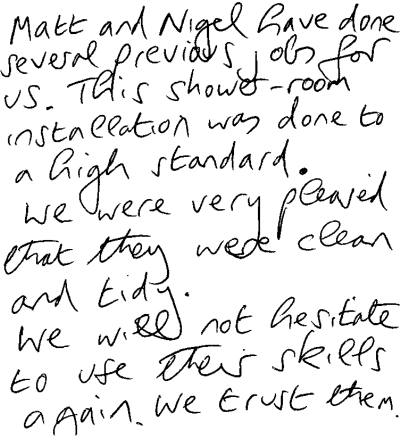 Matt and Nigel have done
several previous jobs for
us. This shower-room
installation was done to
a high standard.
We were very pleased
that they were clean
and tidy.
We will not hesitate
to use their skills
again. We trust them.